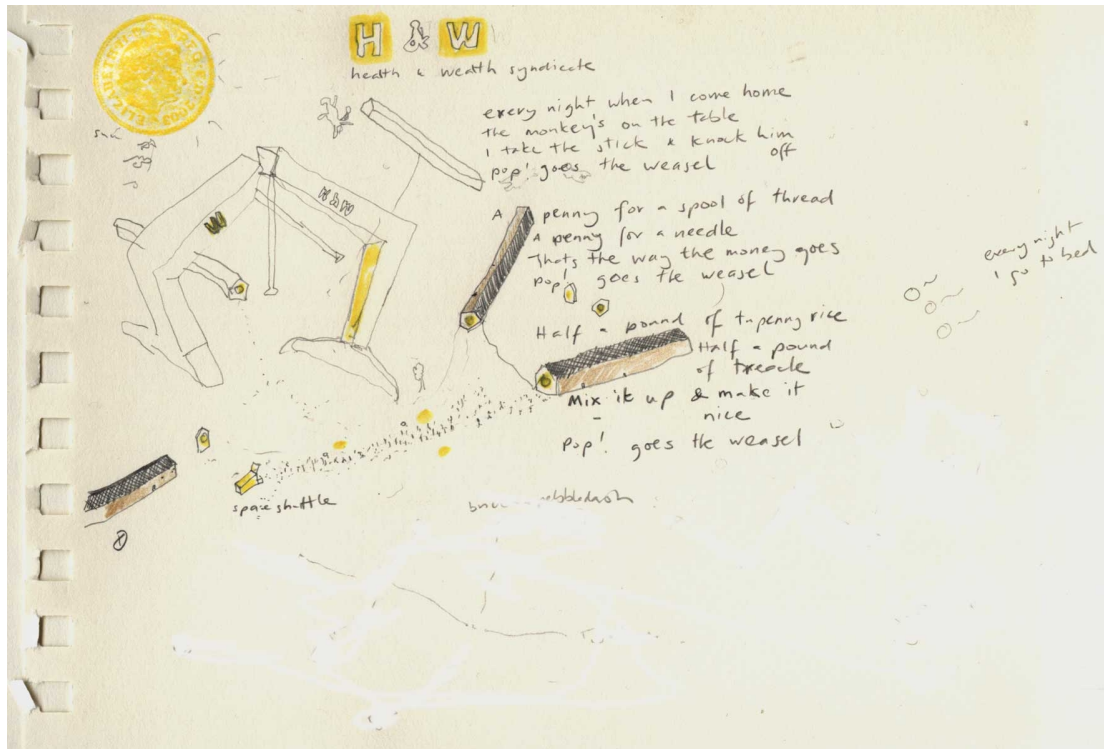 ELIZABETH II D G REG F D 2003
H & W
health & wealth syndicate
sun
every night when I come home
the monkey's on the table
I take the stick & knock him
off
pop! goes the weasel
H&W
W
A penny for a spool of thread
A penny for a needle
Thats the way the money goes
pop! goes the weasel
every night
I go to bed
Half a pound of tupenny rice
Half a pound
of treacle
Mix it up & make it
nice
Pop! goes the weasel
space shuttle
pebbledash